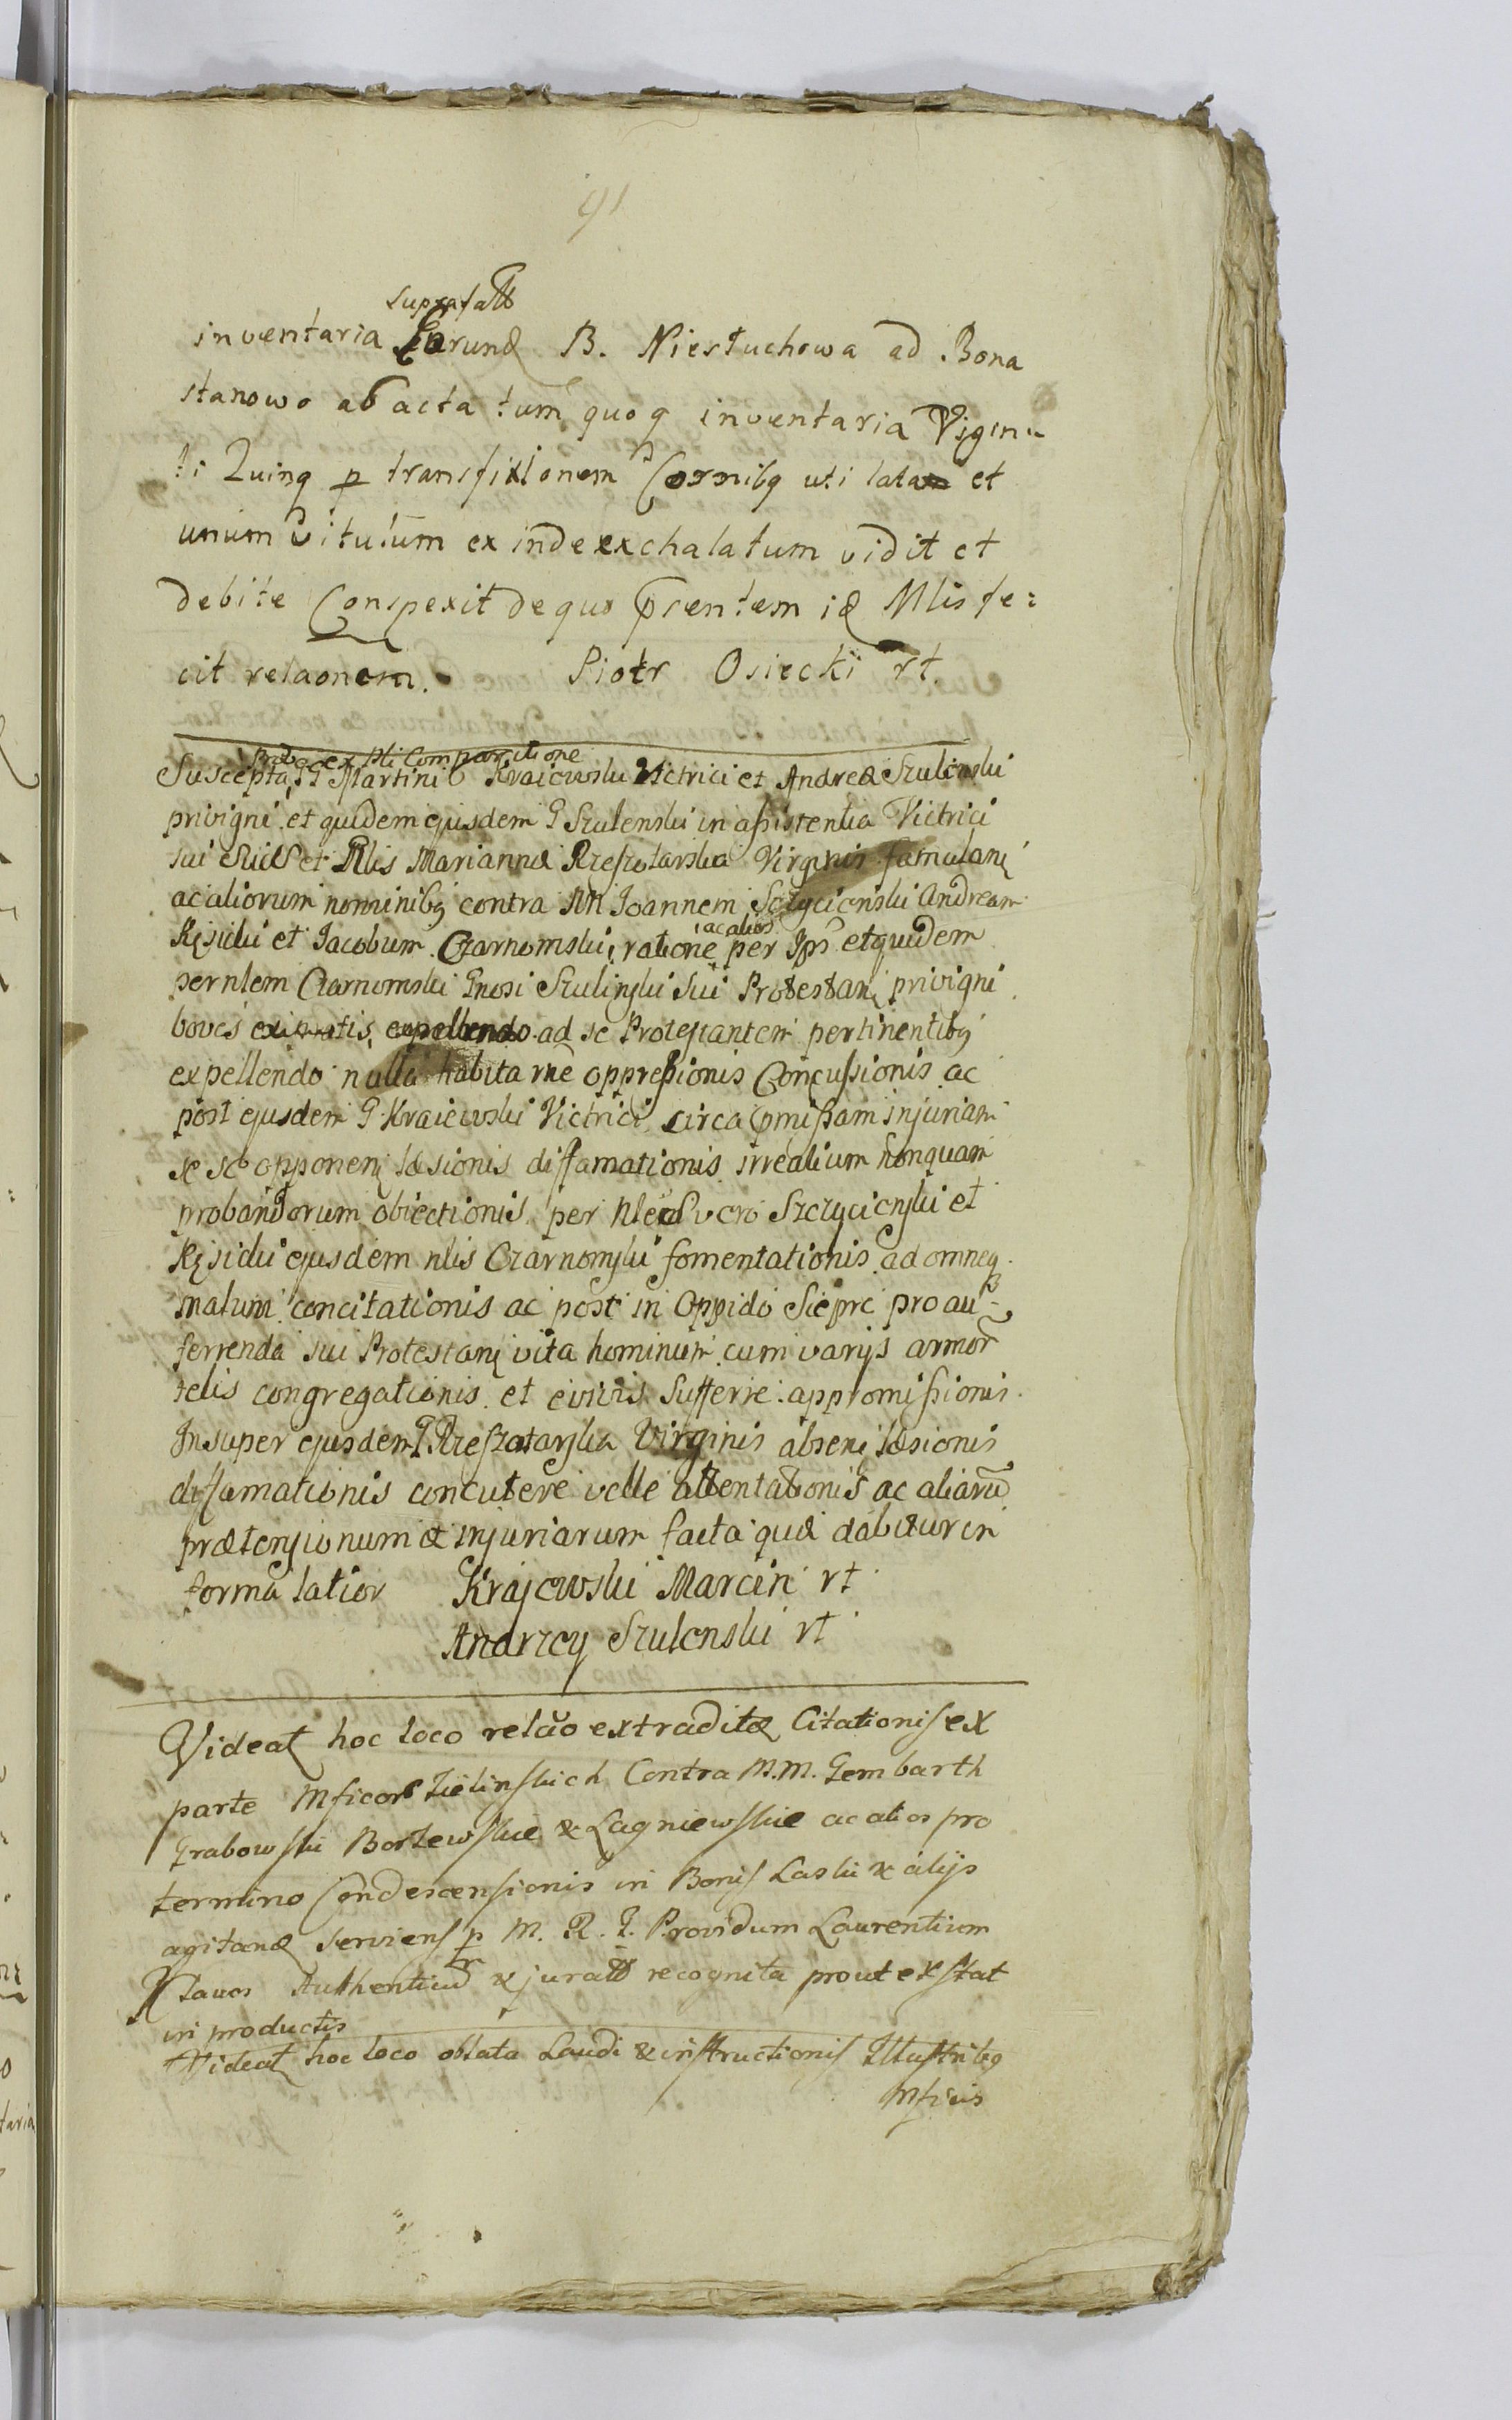 91
suprafatt
inventaria Earund B. Niestuchowa ad Bona
stanowo abacta tum quoq inventaria Vigin-
ti Quinq p transfixionem Cornibq uti lata et
unum vitulum ex inde exchalatum vidit et
debite Conspexit de quo prsentem id Mlis fe:
cit relaonem. Piotr Osiecki rt.
ex Pli Comparitione
Suscepta G Martini Kraiewski Victrici et Andreæ Szulenski
privigni et quidem ejusdem G Szulenski in assistentia Victrici
sui et Nlis Mariannæ Rzeszotarska Virginis famulanę
ac aliorum nominibq contra NN Joannem Szczycienski Andream
Kęsicki et Jacobum Czarnomski, ratione per Ips et quidem
ac alios
per nlem Czarnomski Gnosi Szulinski sui Protestanę privigni
boves expellendo ad se Protestantem pertinentibq
expellendo nulla habita rne oppressionis Concussionis ac
post ejusdem G Kraiewski Victrici circa pmissam injuriam
se se opponenę læsionis diffamationis irrealium nonquam
probandorum obiectionis per Nles vero Szczycienski et
Kęsicki ejusdem nlis Czarnomski fomentationis ad omneq
malum concitationis ac post in Oppido Sieprc pro au-
ferrenda sui Protestanę vita hominum cum varijs armor
telis congregationis et sufferre appromissionis
Insuper ejusdem G Rzeszotarska Virginis absenę læsionis
diffamationis concutere velle attentationis ac aliarū
prætensionum et injuriarum facta quæ dabitur in
forma latior Krajewski Marcin rt
Andrzey Szulenski rt
Videat hoc loco relāo extraditæ Citationis ex
parte Mficor Zielinskich Contra M.M. Gembarth
Grabowski Borzewskie & Łagniewskie ac alios pro
termino Condescensionis in Bonis Laski & alijs
agitand serviens p M. R. G. Providum Laurentium
Klauos Authenticū & juratt recognita prout exstat
in productis
Videat hoc loco oblata Laudi & instructionis Illustribq
Mficis